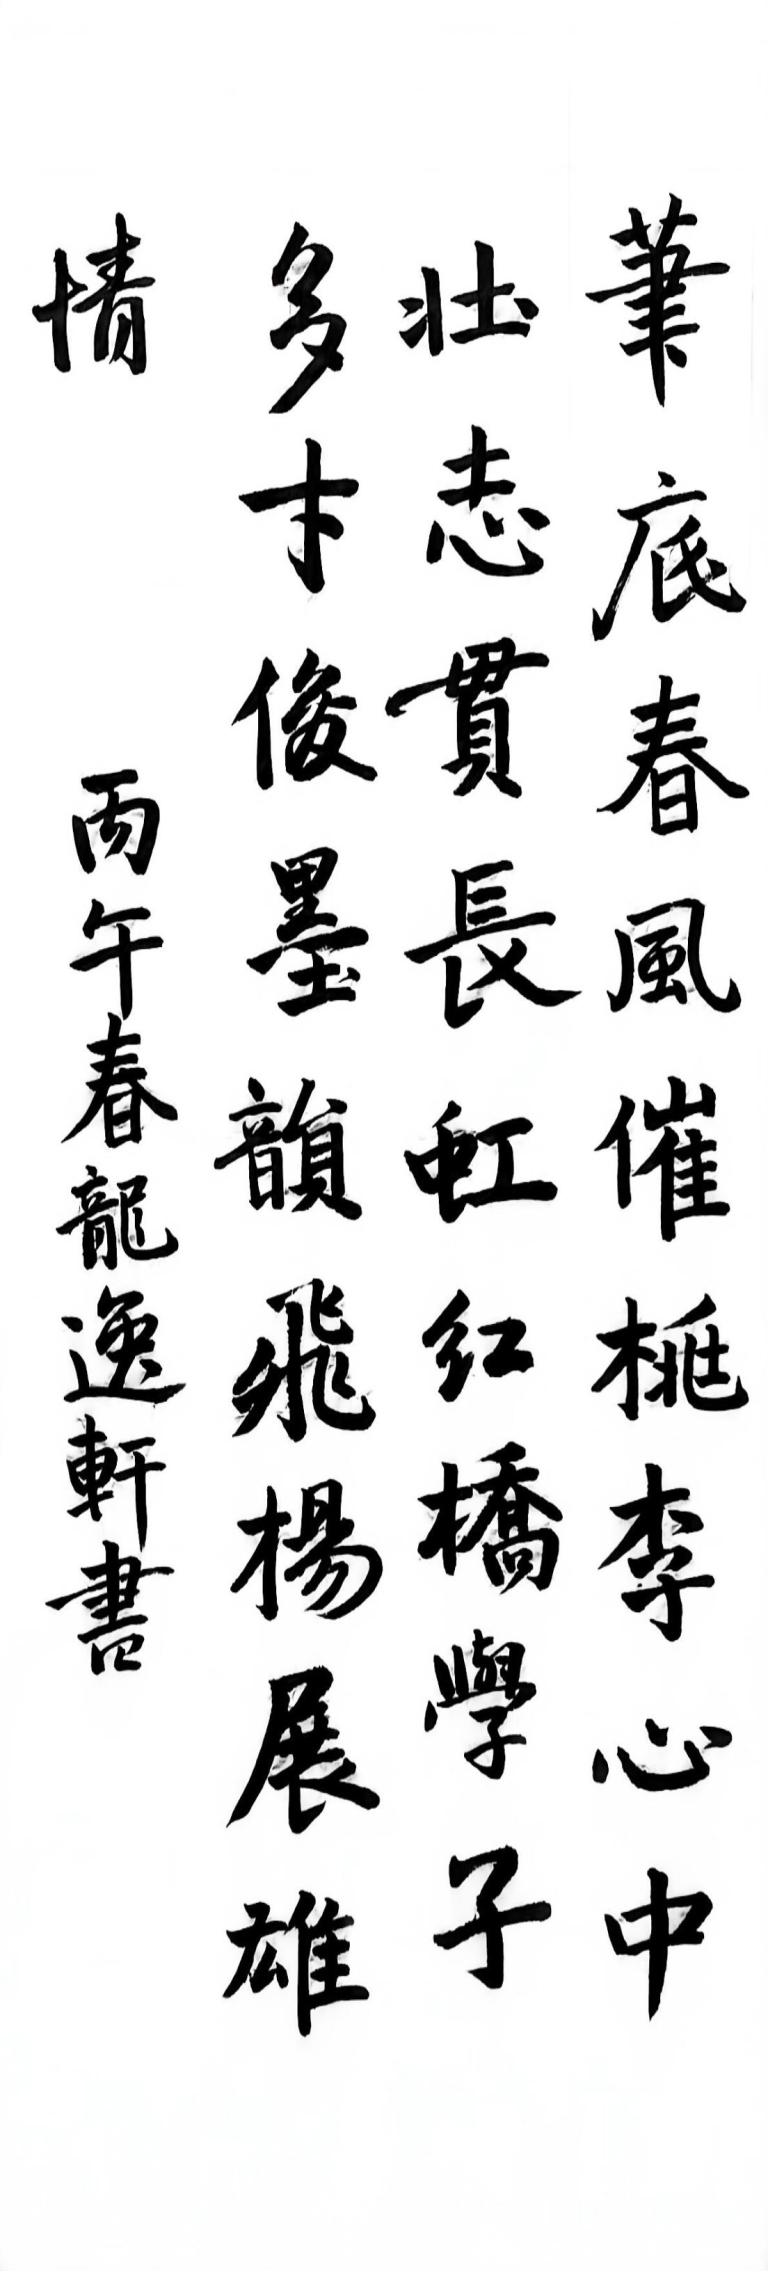 筆底春風催桃李心中
壮志貫長虹红橋學子
多才俊墨韻飛楊展雄
情
丙午春龍逸軒書